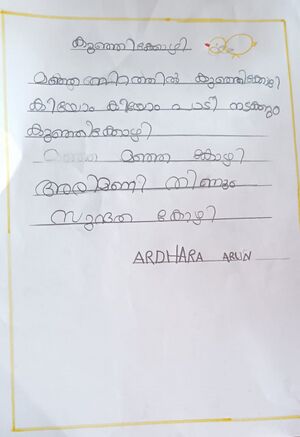 കുഞ്ഞിക്കോഴി
മഞ്ഞ നിറത്തിൽ കുഞ്ഞിക്കോഴി
കിയോം കിയോം പാടി നടക്കും
കുഞ്ഞിക്കോഴി
മഞ്ഞ കോഴി
അരിമണി തിന്നും
സുന്ദര കോഴി
ARDHARA ARUN